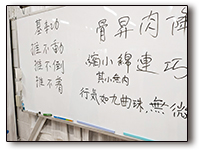 基本功
推不動
推不倒
推不着
骨昇肉降
縮小綿連巧
其小無内
行氣如九曲珠,無微